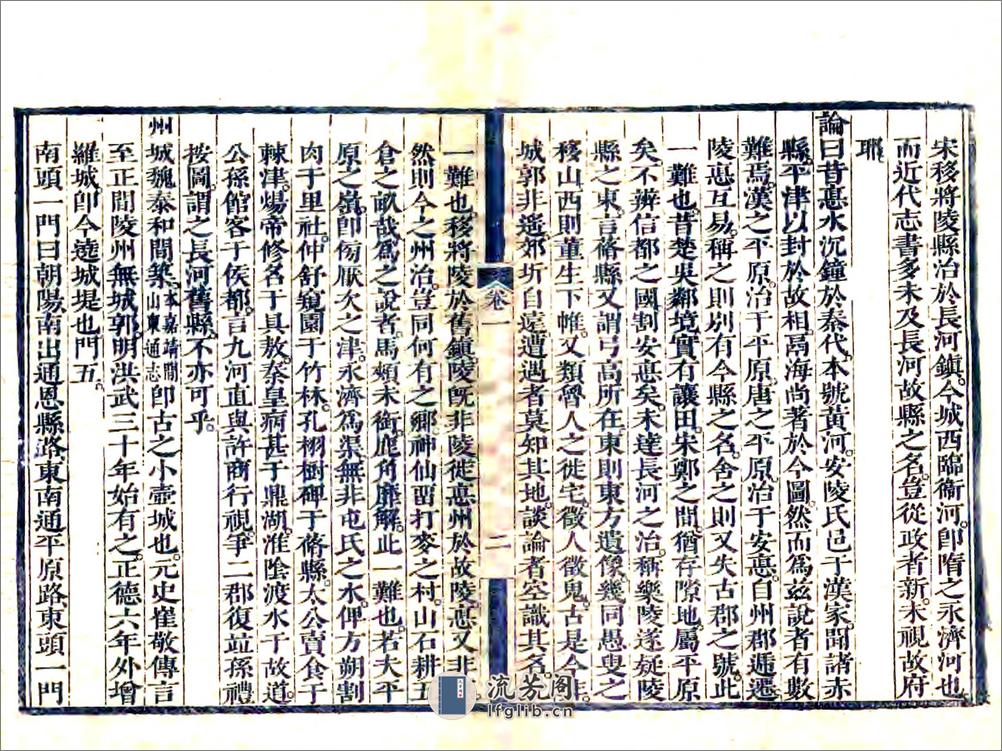 宋移將陵縣治於長河鎮。今城西臨衞河。卽隋之永濟河也
而近代志書多未及長河故縣之名。豈從政者新未視故府
耶
論曰昔惡水沉鐘於秦代。本號黃河。安陵氏邑于漢家。閒諸赤
縣。平津以封於故相。鬲海尚著於今圖。然而爲兹說者有數
難焉。漢之平原。治于平原。唐之平原。治于安惪。自州郡遞遷
陵惪互易。稱之則別有今縣之名。舍之則又失古郡之號。此
一難也。昔楚吳鄰境實有讓田宋鄭之間猶存隙地。屬平原
矣。不辨信都之國。割安惪矣。未達長河之治。稱樂陵遂疑陵
縣之東。言蓨縣又謂弓高所在東則東方遺像。幾同愚叟之
移山西則董生下帷。又類魯人之徙宅。徵人徵鬼。古是今非
城郭非遥。郊圻自遠。遭過者莫知其地。談論者空識其名。
卷一
二
一難也。移將陵於舊鎮。陵旣非陵。徙惪州於故陵。惪又非
然則今之州治。豈同何有之鄉。神仙畱打麥之村。山石耕五
倉之畝哉。爲之說者。馬頰未銜。鹿角靡解。此一難也。若夫平
原之嶺。卽傷厭次之津。永濟爲渠無非屯氏之水。俾方朔割
肉于里社。仲舒窺園于竹林。孔栩樹碑于蓨縣。太公賣食于
棘津。煬帝修名于具敖。秦皇病甚于鼎湖。淮陰渡水于故道。
公孫館客于侯都。言九河直與許商行視。爭二郡復竝孫禮
按圖。謂之長河舊縣。不亦可乎。
州城魏泰和間築。本嘉靖間山東通志卽古之小壺城也。元史崔敬傳言
至正間陵州無城郭。明洪武三十年始有之。正德六年外增
羅城。卽今遶城堤也。門五。
南頭一門曰朝陽南出通恩縣路東南通平原路東頭一門
流芳閣
lfglib.cn